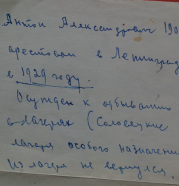 Антон Александрович 190
арестован в Ленинград
в 1929 году.
Осужден к отбыванию
в лагерях (Соловецкие
лагеря особого назначения
из лагеря не вернулся.